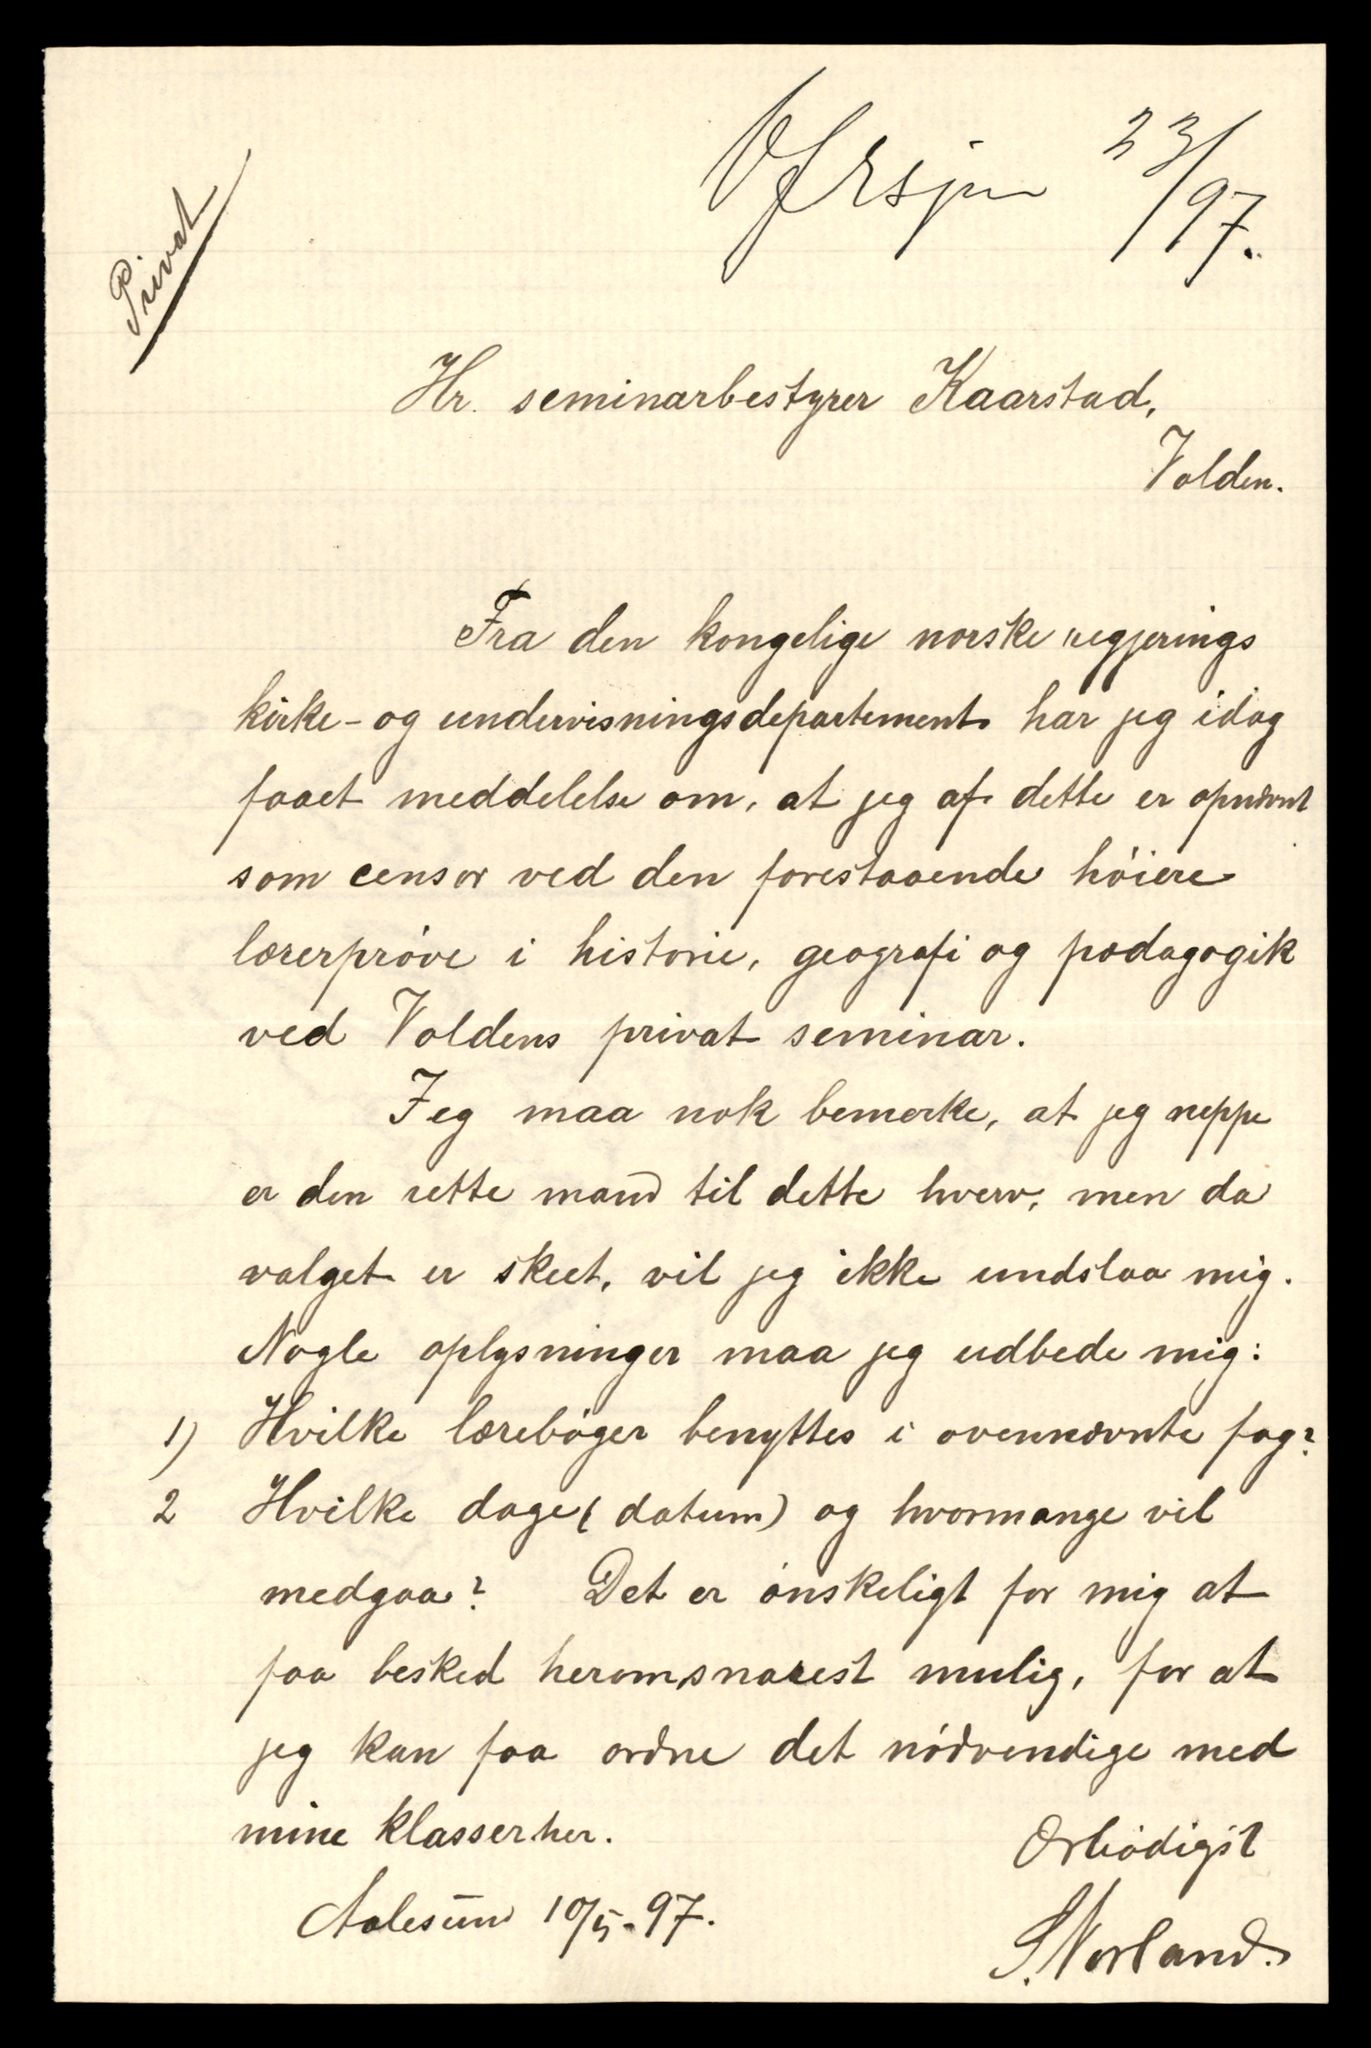 23/97.
Privat
Hr. seminarbestyrer Kaarstad,
Volden.
Fra den kongelige norske regjerings
kirke- og undervisningsdepartement har jeg idag
faaet meddelelse om, at jeg af dette er opnævnt
som censor ved den forestaaende höiere
lærerpröve i historie, geografi og pædagogik
ved Voldens privat seminar.
Jeg maa nok bemærke, at jeg neppe
er den rette mand til dette hverv, men da
valget er skeet, vil jeg ikke undslaa mig.
Nogle oplysninger maa jeg udbede mig:
1) Hvilke læreböger benyttes i ovennævnte fag?
2 Hvilke dage (datum) og hvormange vil
medgaa? Det er önskeligt for mig at
faa besked herom snarest mulig, for at
jeg kan faa ordne det nödvendige med
mine klasser her.
Ærbödigst
Aalesund 10/5-97.
S. Norland.